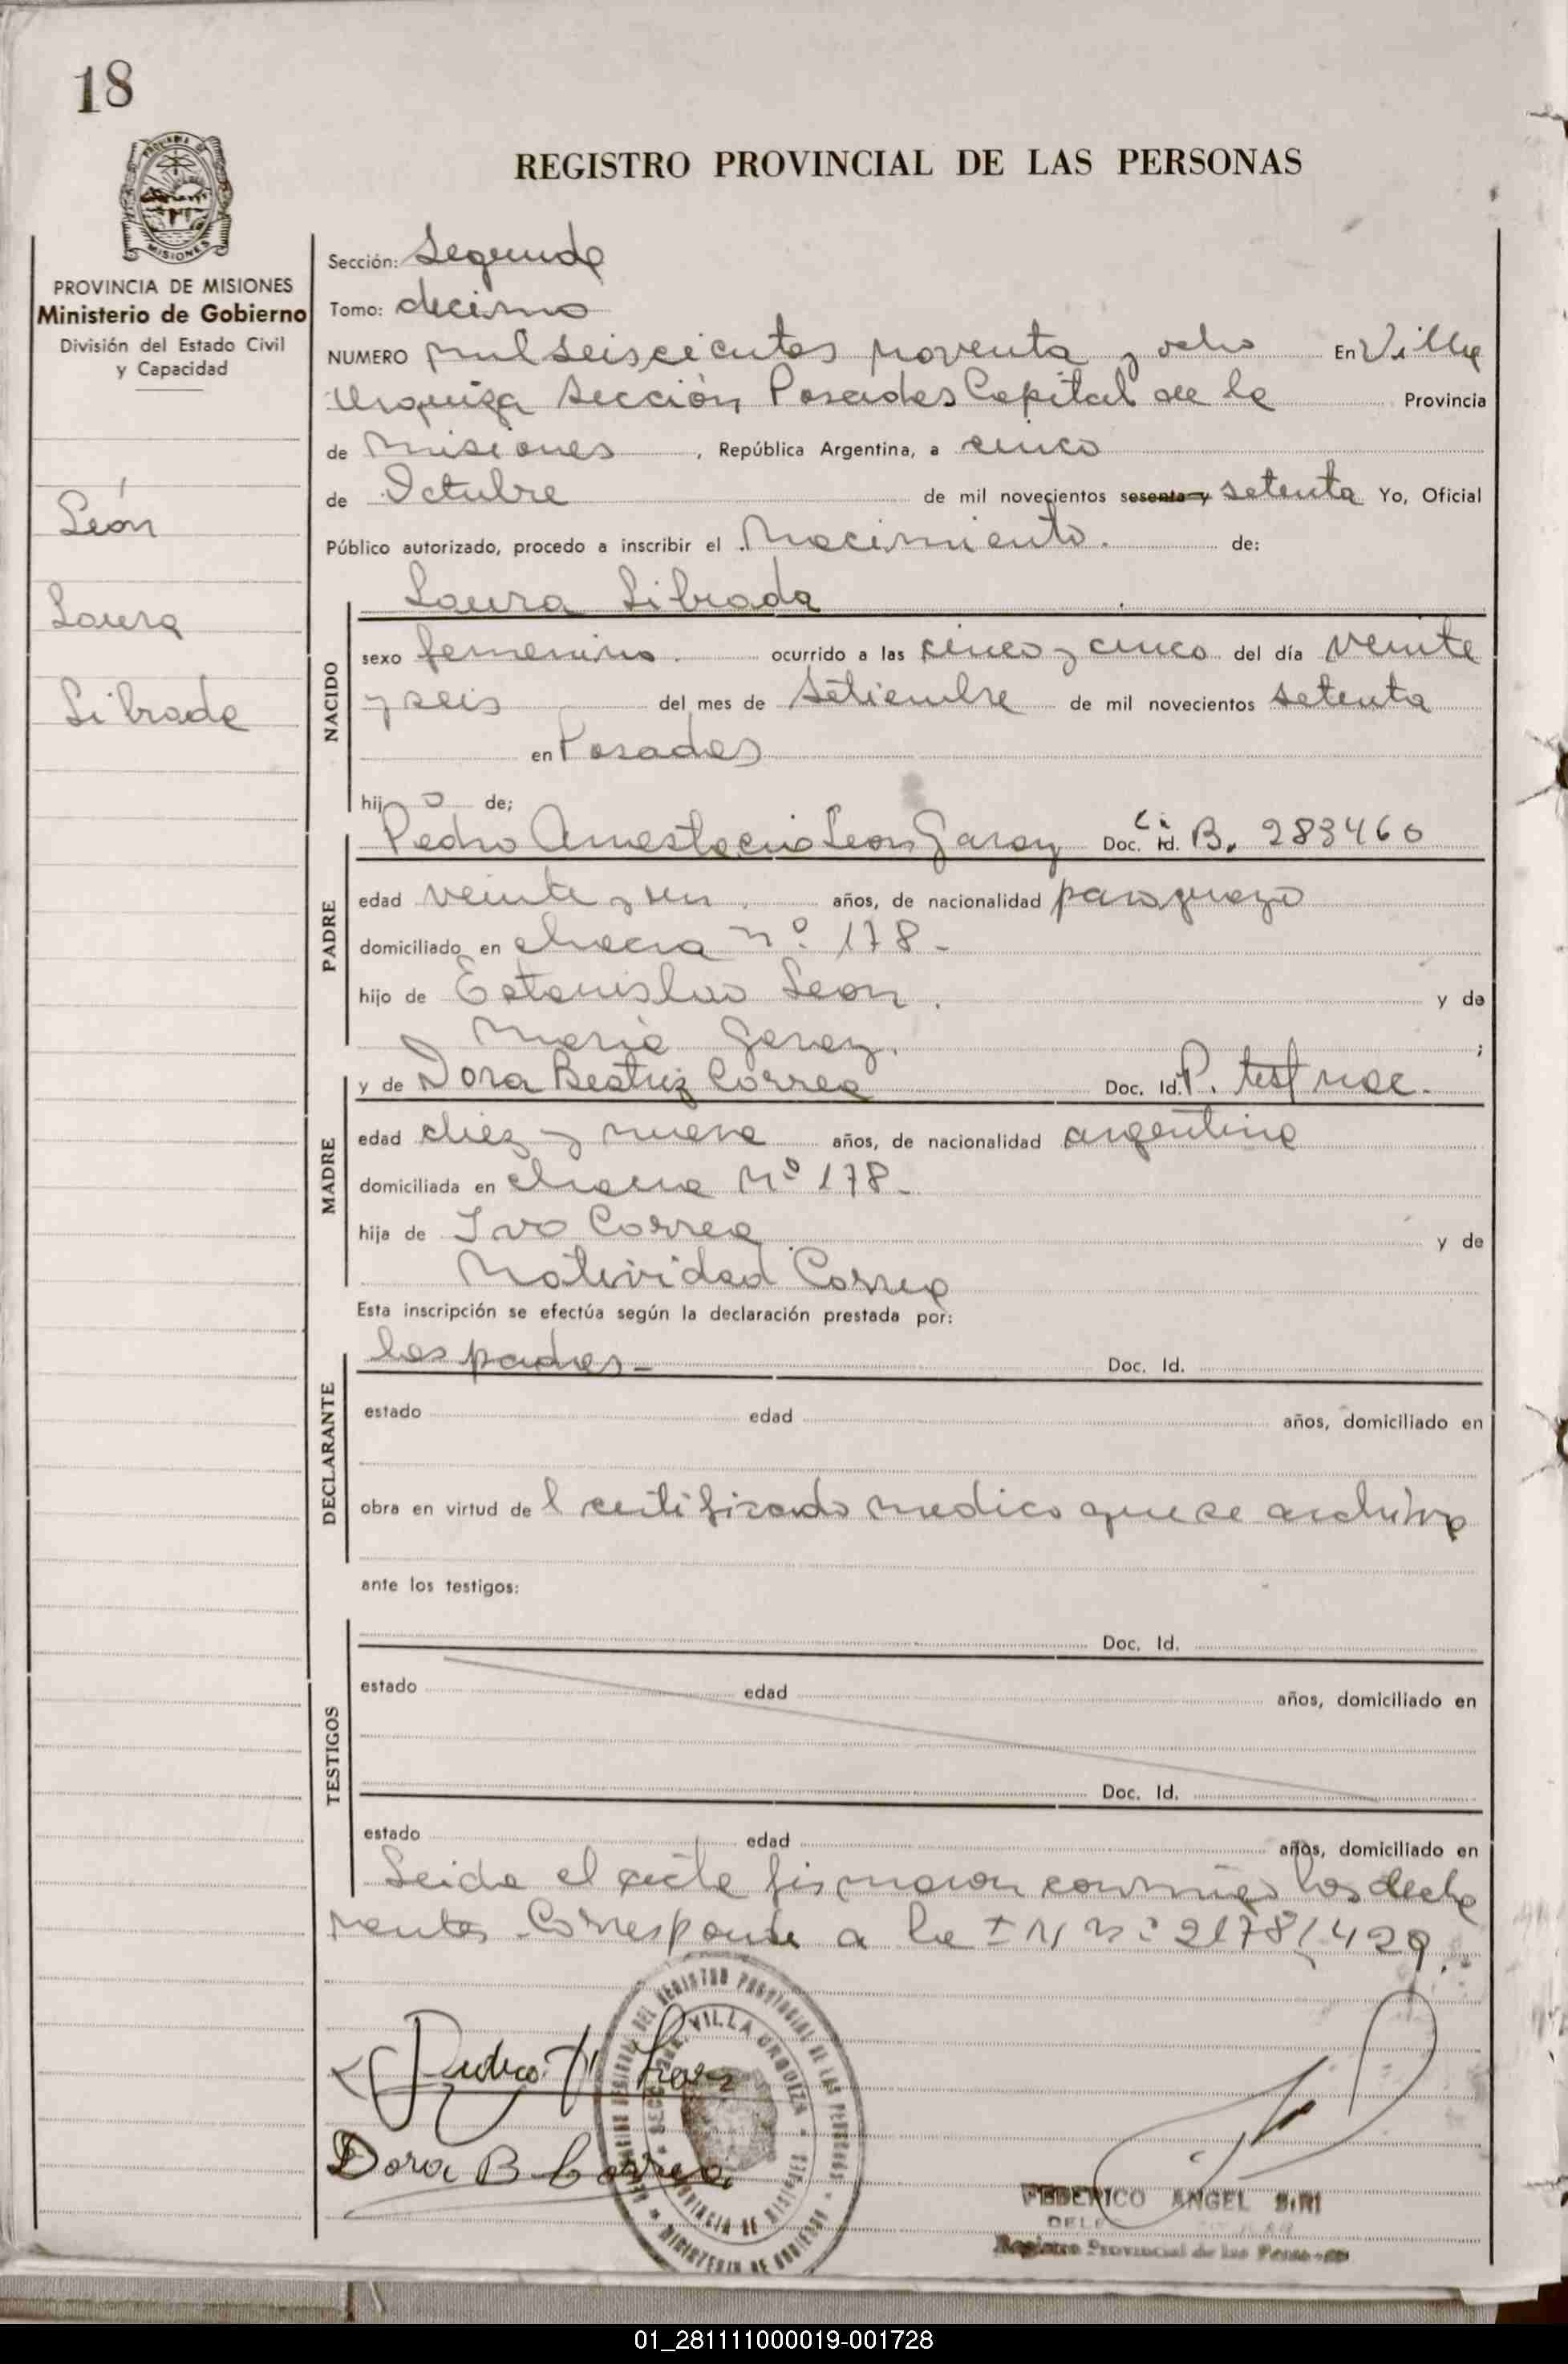 18
REGISTRO PROVINCIAL DE LAS PERSONAS
PROVINCIA DE MISIONES
Ministerio de Gobierno
División del Estado Civil
y Capacidad
León
Laura
Librada
Sección: Segunda
Tomo: decimo
NUMERO mil seiscientos noventa y ocho En Villa
Urquiza Sección Posadas Capital de la Provincia
de Misiones, República Argentina, a cinco
de Octubre de mil novecientos sesenta y setenta Yo, Oficial
Público autorizado, procedo a inscribir el Nacimiento. de:
NACIDO
Laura Librada
sexo femenino. ocurrido a las cinco y cinco del día veinte
y seis del mes de Setiembre de mil novecientos setenta
en Posadas
hij o de;
PADRE
Pedro Leon Garay Doc. Id. C. i B. 283460
edad veinte y un años, de nacionalidad paraguayo
domiciliado en chacra nº 178-
hijo de Estanislao Leon. y de
Maria Garay. ;
MADRE
y de Dora Beatriz Correa Doc. Id. P. test nac.
edad diez y nueve años, de nacionalidad argentina
domiciliada en chacra Nº 178-
hija de Ivo Correa y de
Natividad Correa
Esta inscripción se efectúa según la declaración prestada por:
DECLARANTE
los padres- Doc. Id.
estado edad años, domiciliado en
obra en virtud de l certificado medico que se archiva
ante los testigos:
TESTIGOS
Doc. Id.
estado edad años, domiciliado en
Doc. Id.
estado edad años, domiciliado en
Leida el acta firmaron conmigo los decla
rantes. Corresponde a la
Dora B Correa
VILLA URQUIZA
PROVINCIA DE MISIONES
MINISTERIO DE GOBIERNO
FEDERICO ANGEL SIRI
Registro Provincial de las Personas
01_281111000019-001728